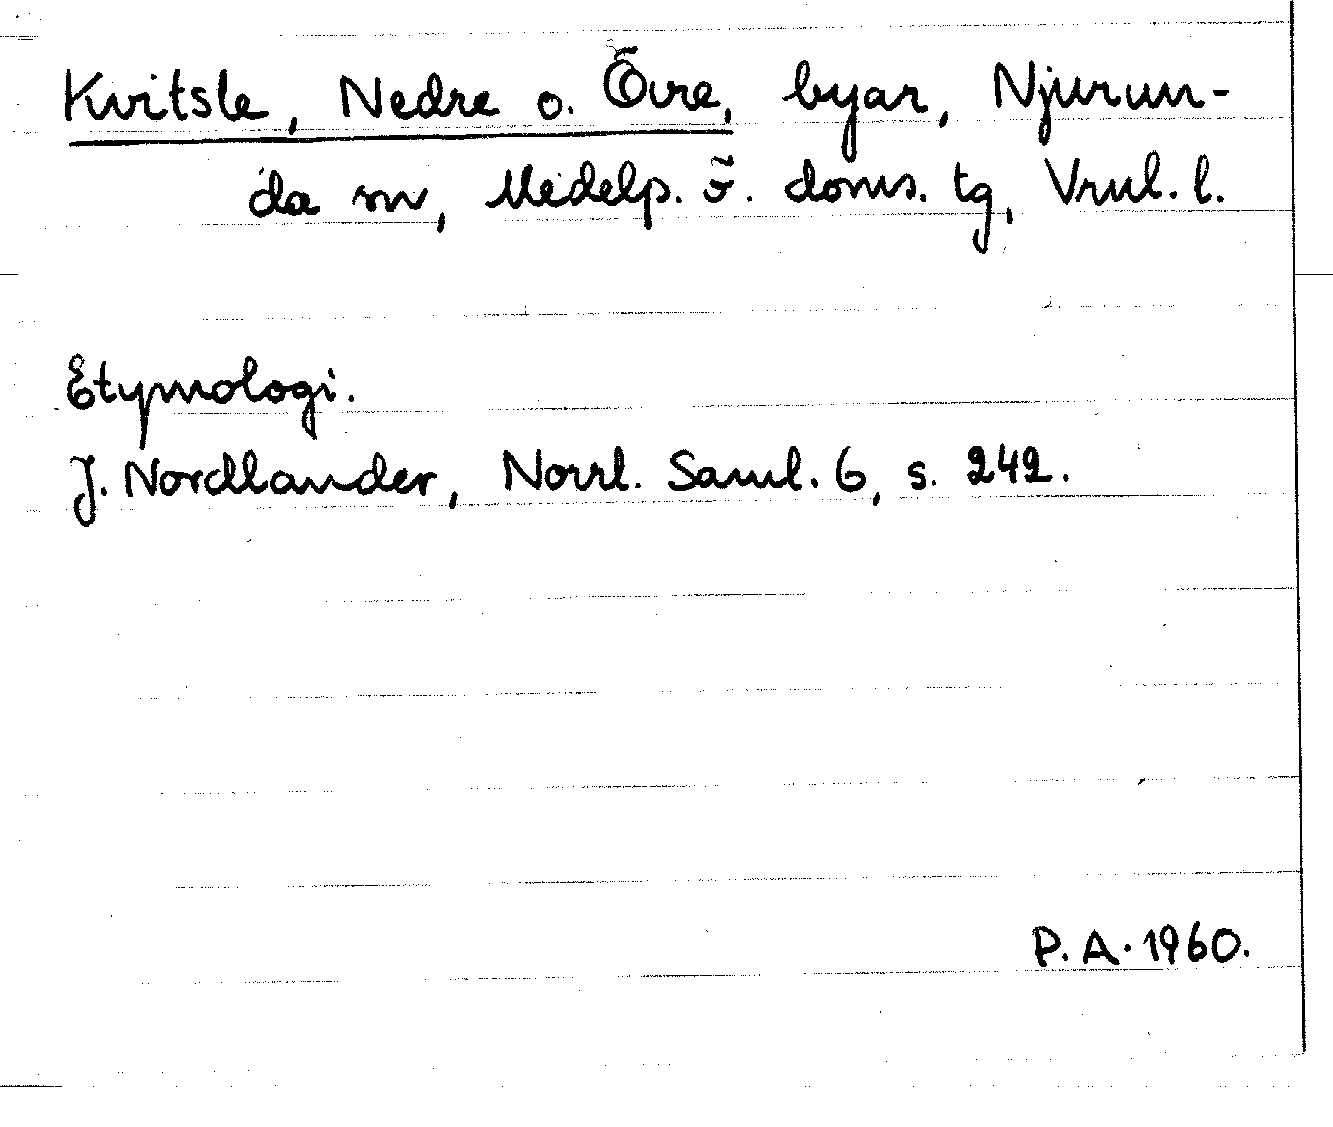 Kvitsle, Nedre o. Övre, byar, Njurun-
da sn, Medelp. ö. doms. tg, Vrnl. l.
Etymologi.
J. Nordlander, Norrl. Saml. 6, s. 242.
P. A. 1960.